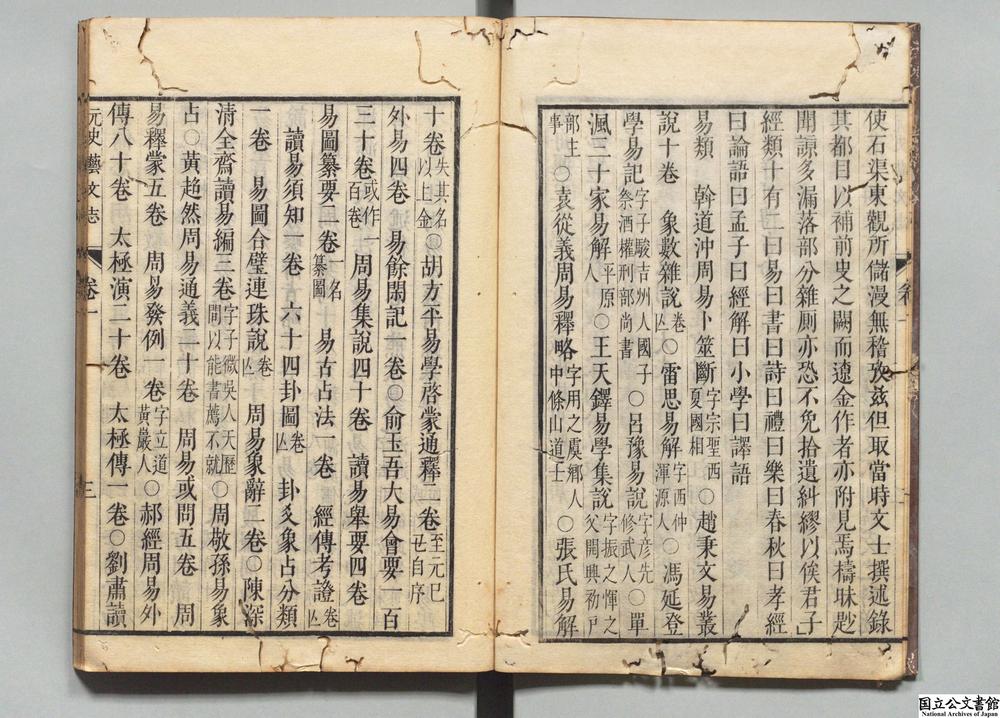 使石渠東觀所儲漫無稽攷茲但取當時文士撰述錄
其都目以補前史之闕而遼金作者亦附見焉檮昧尟
聞諒多漏落部分雜厠亦恐不免拾遺糾繆以俟君子
經類十有二曰易曰書曰詩曰禮曰樂曰春秋曰孝經
曰論語曰孟子曰經解曰小學曰譯語
易類　斡道沖周易卜筮斷字宗聖西夏國相○趙秉文易叢
說十卷　象數雜說卷亾○雷思易解字西仲渾源人○馮延登
學易記字子駿吉州人國子祭酒權刑部尚書○呂豫易說字彥先修武人○單
渢三十家易解平原人○王天鐸易學集說字振之惲之父開興初戸
部主事○袁從義周易釋略字用之虞鄉人中條山道士○張氏易解
十卷失其名以上金○胡方平易學啓蒙通釋二卷至元己丑自序
外易四卷　易餘閑記一卷○俞玉吾大易會要一百
三十卷或作一百卷　周易集說四十卷　讀易舉要四卷
易圖纂要二卷一名纂圖　易古占法一卷　經傳考證卷亾
讀易須知一卷　六十四卦圖卷亾　卦爻象占分類
一卷　易圖合璧連珠說卷亾　周易象辭二卷○陳深
清全齋讀易編三卷字子微吳人天歷間以能書薦不就○周敬孫易象
占○黃超然周易通義二十卷　周易或問五卷　周
易釋蒙五卷　周易發例一卷字立道黃巖人○郝經周易外
傳八十卷　太極演二十卷　太極傳一卷○劉肅讀
元史藝文志　卷一　三
国立公文書館
National Archives of Japan